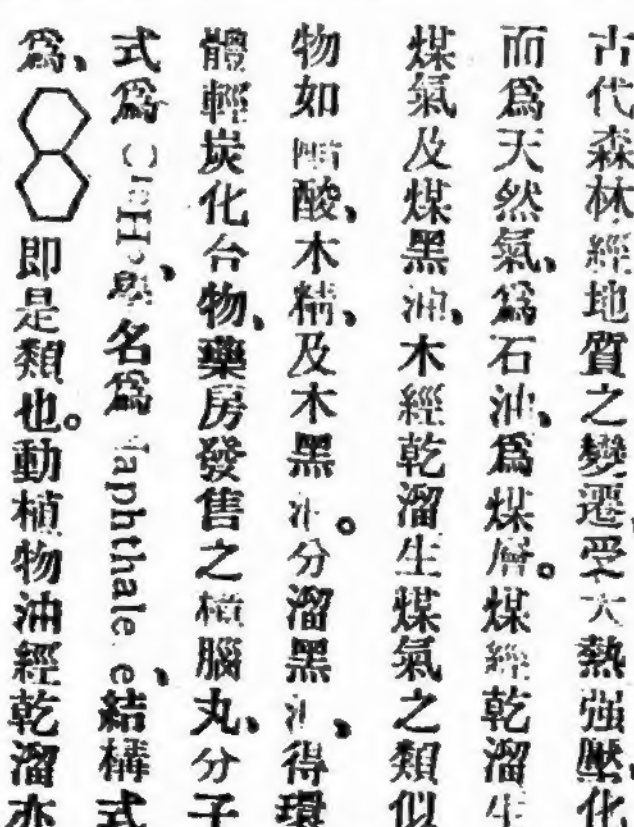 古代森林經地質之變遷、受大熱强壓、化
而爲天然氣、爲石油、爲煤層。煤經乾溜生
煤氣及煤黑油、木經乾溜生煤氣之類似
物如醋酸、木精、及木黑油。分溜黑油、得環
體輕炭化合物、藥房發售之樟腦丸、分子
式爲 學名爲 結構式
爲、即是類也。動植物油經乾溜亦